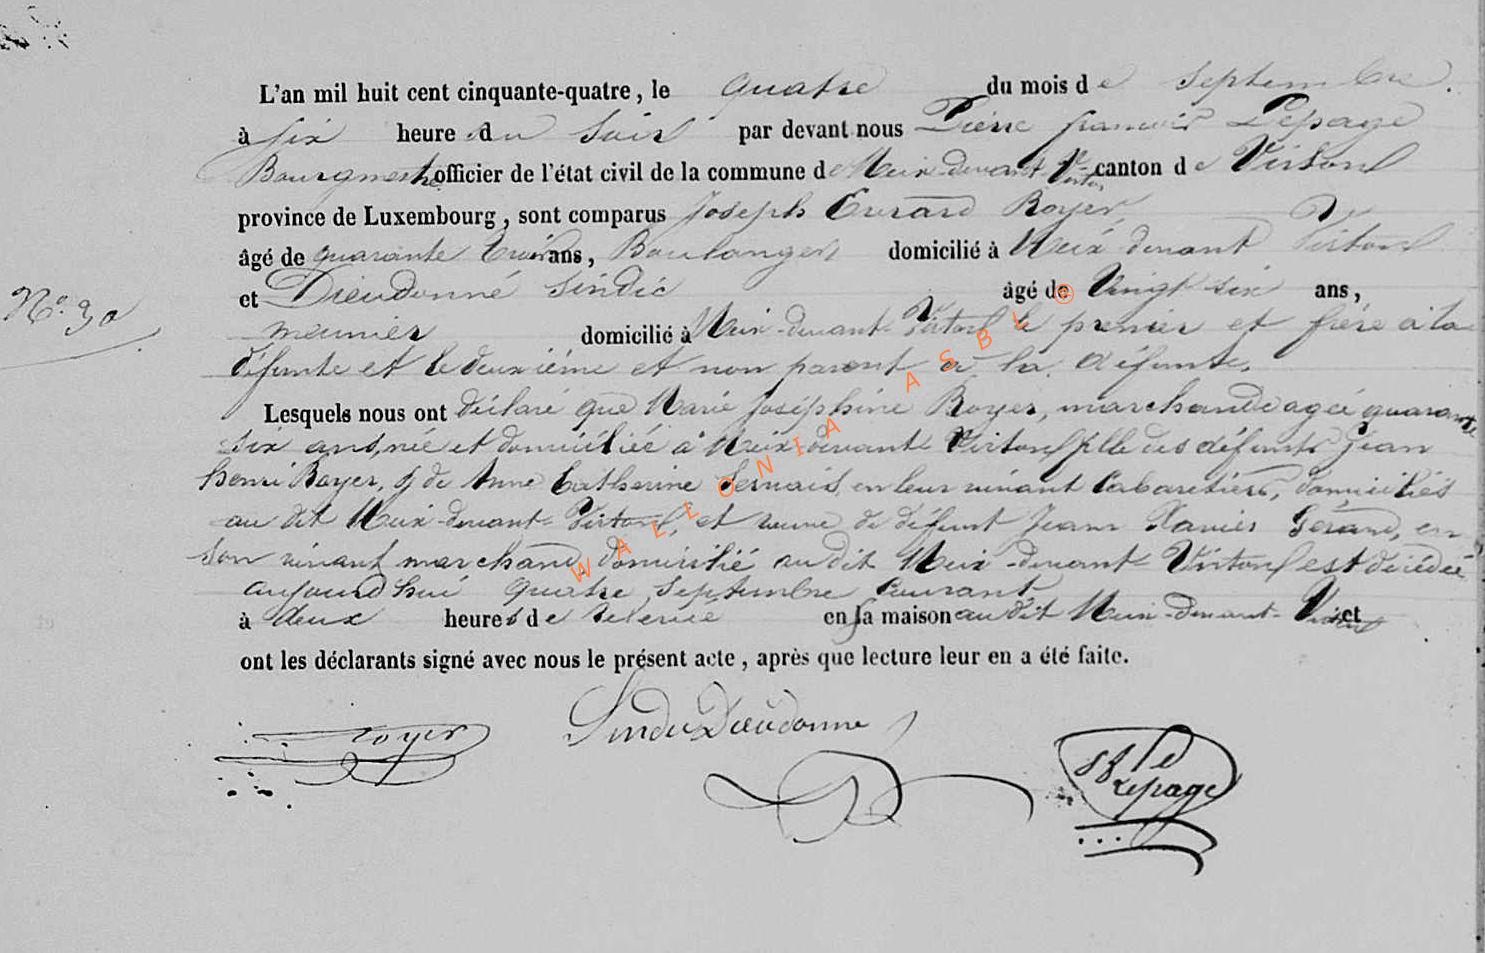 L'an mil huit cent cinquante-quatre, le quatre du mois de Septembre.
à six heure du Soir par devant nous Pierre françois Lepage
Bourgmestre officier de l'état civil de la commune de Meix-devant-Virton canton de Virton
province de Luxembourg, sont comparus Joseph Evrard Royer,
âgé de quarante trois ans, Boulanger domicilié à Meix devant Virton
N° 30
et Dieudonné Sindic âgé de Vingt six ans,
meunier domicilié à Meix-devant-Virton le premier et frère à la
défunte et le deuxième et non parent à la défunte.
Lesquels nous ont déclaré que Marie Joséphine Royer, marchande agée quarante
six ans, née et domiciliée à Meix devant Virton fille des défunts Jean
henri Royer, & de Anne Catherine Servais, en leur vivant Cabaretiers, domiciliés
au dit Meix-devant-Virton, et veuve de défunt Jean Xavier Gérard, en
son vivant marchand, domicilié au dit Meix-devant-Virton est décédée
aujourd'hui quatre Septembre Courant
à deux heures de relevée en sa maison au dit Meix-devant-Virton et
ont les déclarants signé avec nous le présent acte, après que lecture leur en a été faite.
Royer
Sindic Dieudonne
Lepage
WALLONIA ASBL ©